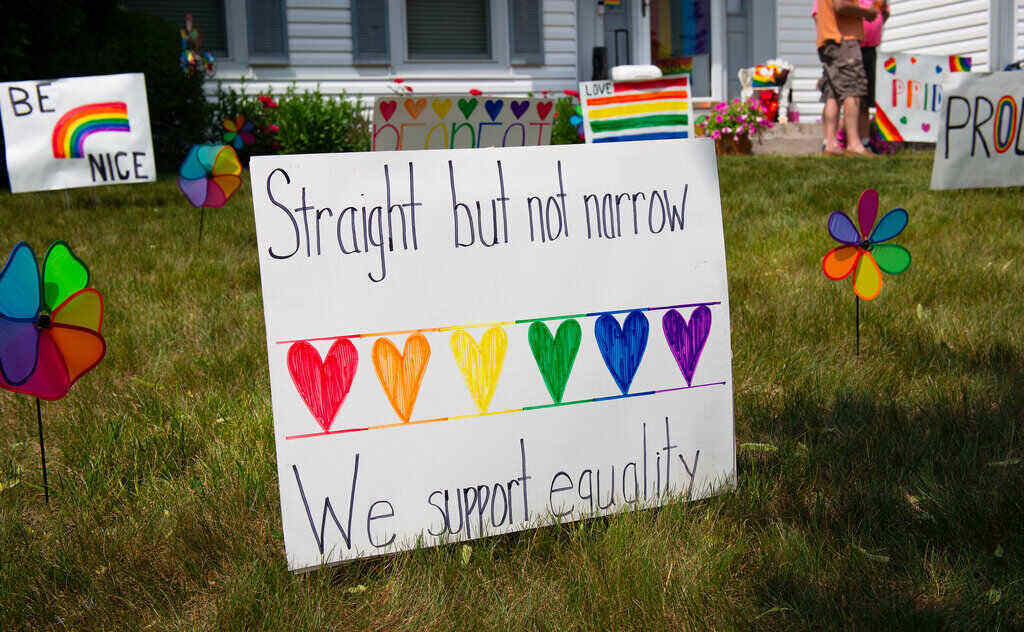 BE
NICE
LOVE
PRID
PROU
Straight but not narrow
We support equality